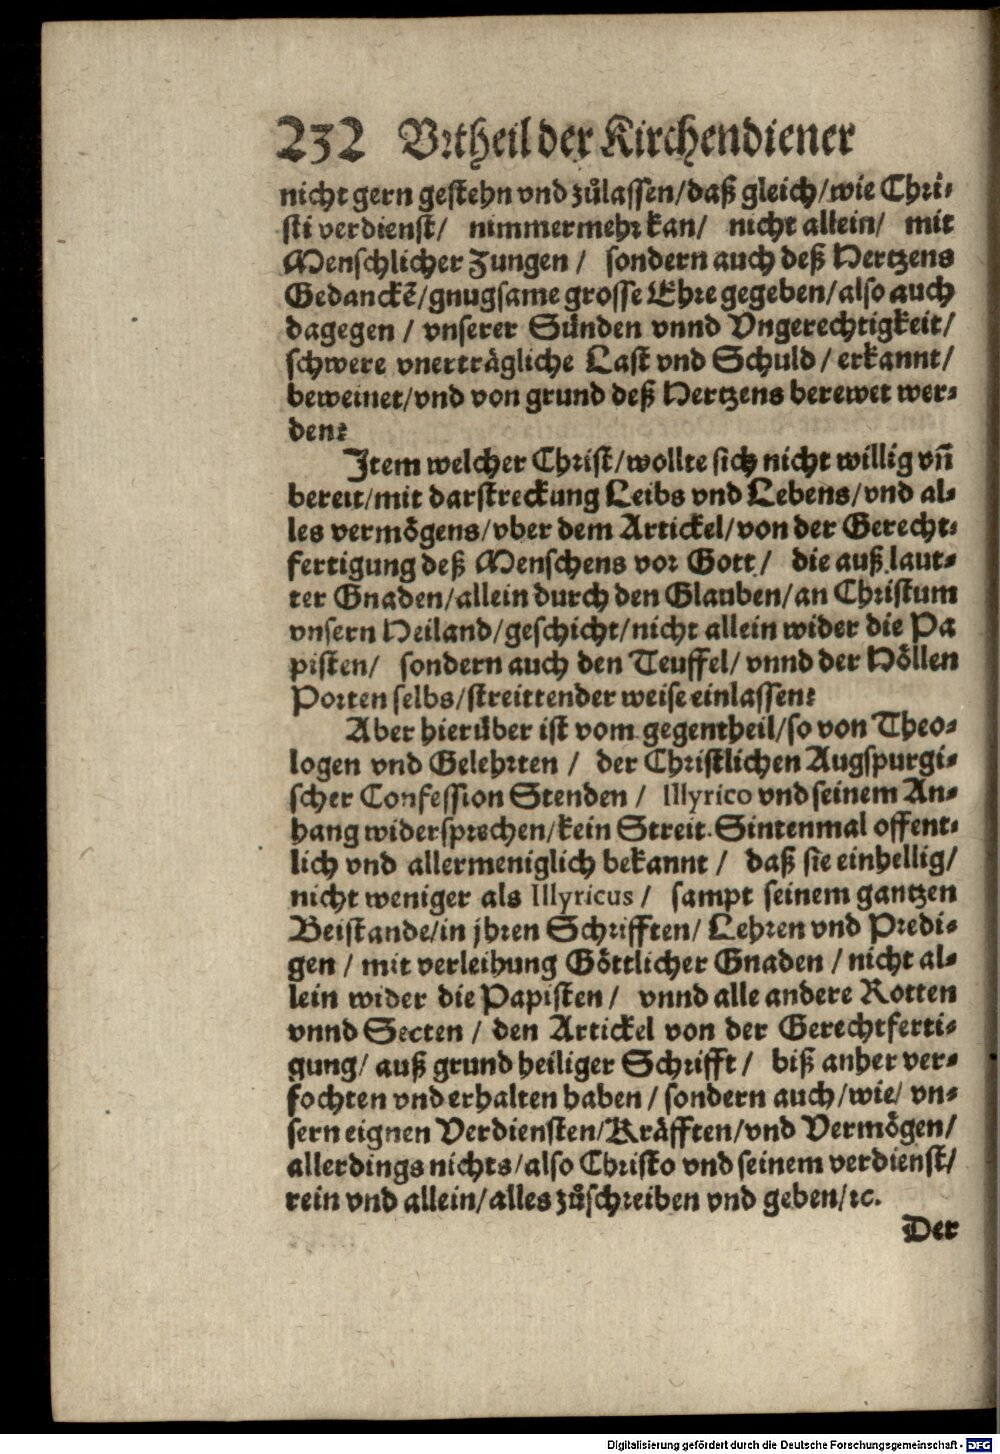 232 Vrtheil der Kirchendiener
nicht gern gestehn vnd zůlassen/daß gleich/wie Chri-
sti verdienst/ nimmermehr kan/ nicht allein/ mit
Menschlicher Zungen / sondern auch deß Hertzens
Gedanckẽ/gnugsame grosse Ehre gegeben/also auch
dagegen / vnserer Sünden vnnd Vngerechtigkeit/
schwere vnerträgliche Last vnd Schuld / erkannt/
beweinet/vnd von grund deß Hertzens berewet wer-
den?
Item welcher Christ/wollte sich nicht willig vñ
bereit/mit darstreckung Leibs vnd Lebens/vnd al-
les vermögens/vber dem Artickel/von der Gerecht-
fertigung deß Menschens vor Gott / die auß laut-
ter Gnaden/allein durch den Glauben/an Christum
vnsern Heiland/geschicht/nicht allein wider die Pa
pisten/ sondern auch den Teuffel/ vnnd der Höllen
Porten selbs/streittender weise einlassen?
Aber hierüber ist vom gegentheil/so von Theo-
logen vnd Gelehrten / der Christlichen Augspurgi-
scher Confession Stenden / Illyrico vnd seinem An-
hang widersprechen/kein Streit. Sintenmal offent-
lich vnd allermeniglich bekannt / daß sie einhellig/
nicht weniger als Illyricus / sampt seinem gantzen
Beistande/in jhren Schrifften/ Lehren vnd Predi-
gen / mit verleihung Göttlicher Gnaden / nicht al-
lein wider die Papisten / vnnd alle andere Rotten
vnnd Secten / den Artickel von der Gerechtferti-
gung/ auß grund heiliger Schrifft / biß anher ver-
fochten vnd erhalten haben / sondern auch/wie/ vn-
sern eignen Verdiensten/Kräfften/vnd Vermögen/
allerdings nichts/also Christo vnd seinem verdienst/
rein vnd allein/alles zůschreiben vnd geben/ꝛc.
Der
Digitalisierung gefördert durch die Deutsche Forschungsgemeinschaft - DFG